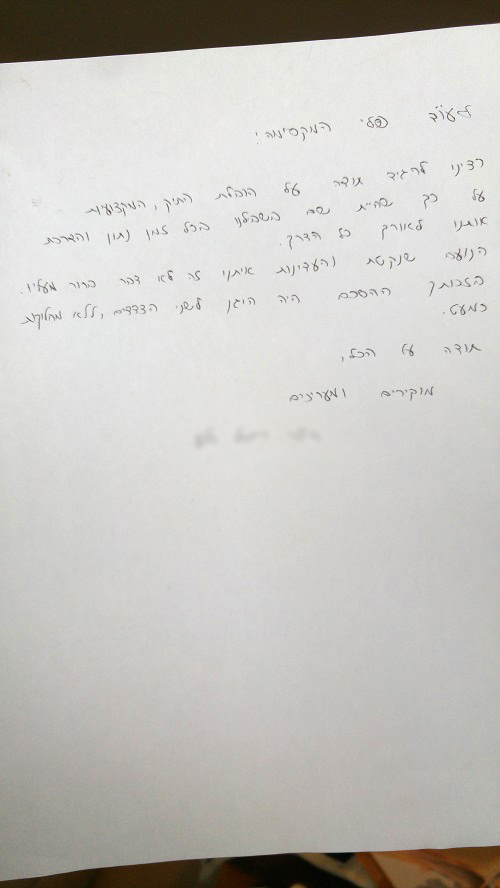 לעו"ד פלי המקסימה!
רצינו להגיד תודה על הובלת התיק, המקצועיות
על כך שהיית שם בשבילנו בכל זמן נתון והדרכת
אותנו לאורך כל הדרך.
הנועם שנקטת והעדינות איתנו זה לא דבר ברור מעליו.
בזכותך ההסכם היה הוגן לשני הצדדים, ללא מחלוקות
כמעט.
תודה על הכל,
מוקירים ומעריצים